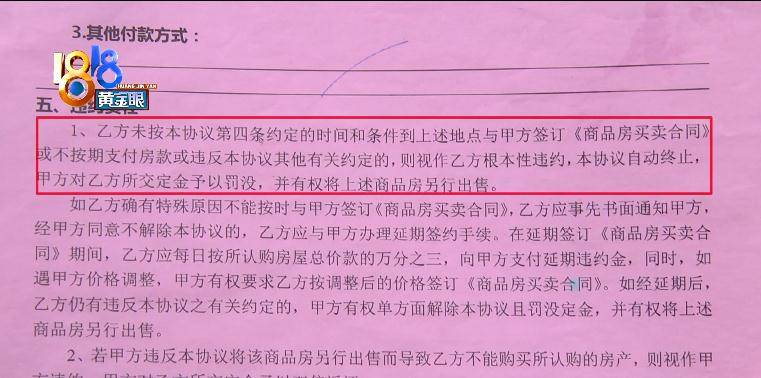 3.其他付款方式：
1818
HUANG JIN YAN
黄金眼
五、违约责任
1、乙方未按本协议第四条约定的时间和条件到上述地点与甲方签订《商品房买卖合同》
或不按期支付房款或违反本协议其他有关约定的，则视作乙方根本性违约，本协议自动终止，
甲方对乙方所交定金予以罚没，并有权将上述商品房另行出售。
如乙方确有特殊原因不能按时与甲方签订《商品房买卖合同》，乙方应事先书面通知甲方，
经甲方同意不解除本协议的，乙方应与甲方办理延期签约手续。在延期签订《商品房买卖合
同》期间，乙方应每日按所认购房屋总价款的万分之三，向甲方支付延期违约金，同时，如
遇甲方价格调整，甲方有权要求乙方按调整后的价格签订《商品房买卖合同》。如经延期后，
乙方仍有违反本协议之有关约定的，甲方有权单方面解除本协议且罚没定金，并有权将上述
商品房另行出售。
2、若甲方违反本协议将该商品房另行出售而导致乙方不能购买所认购的房产，则视作甲